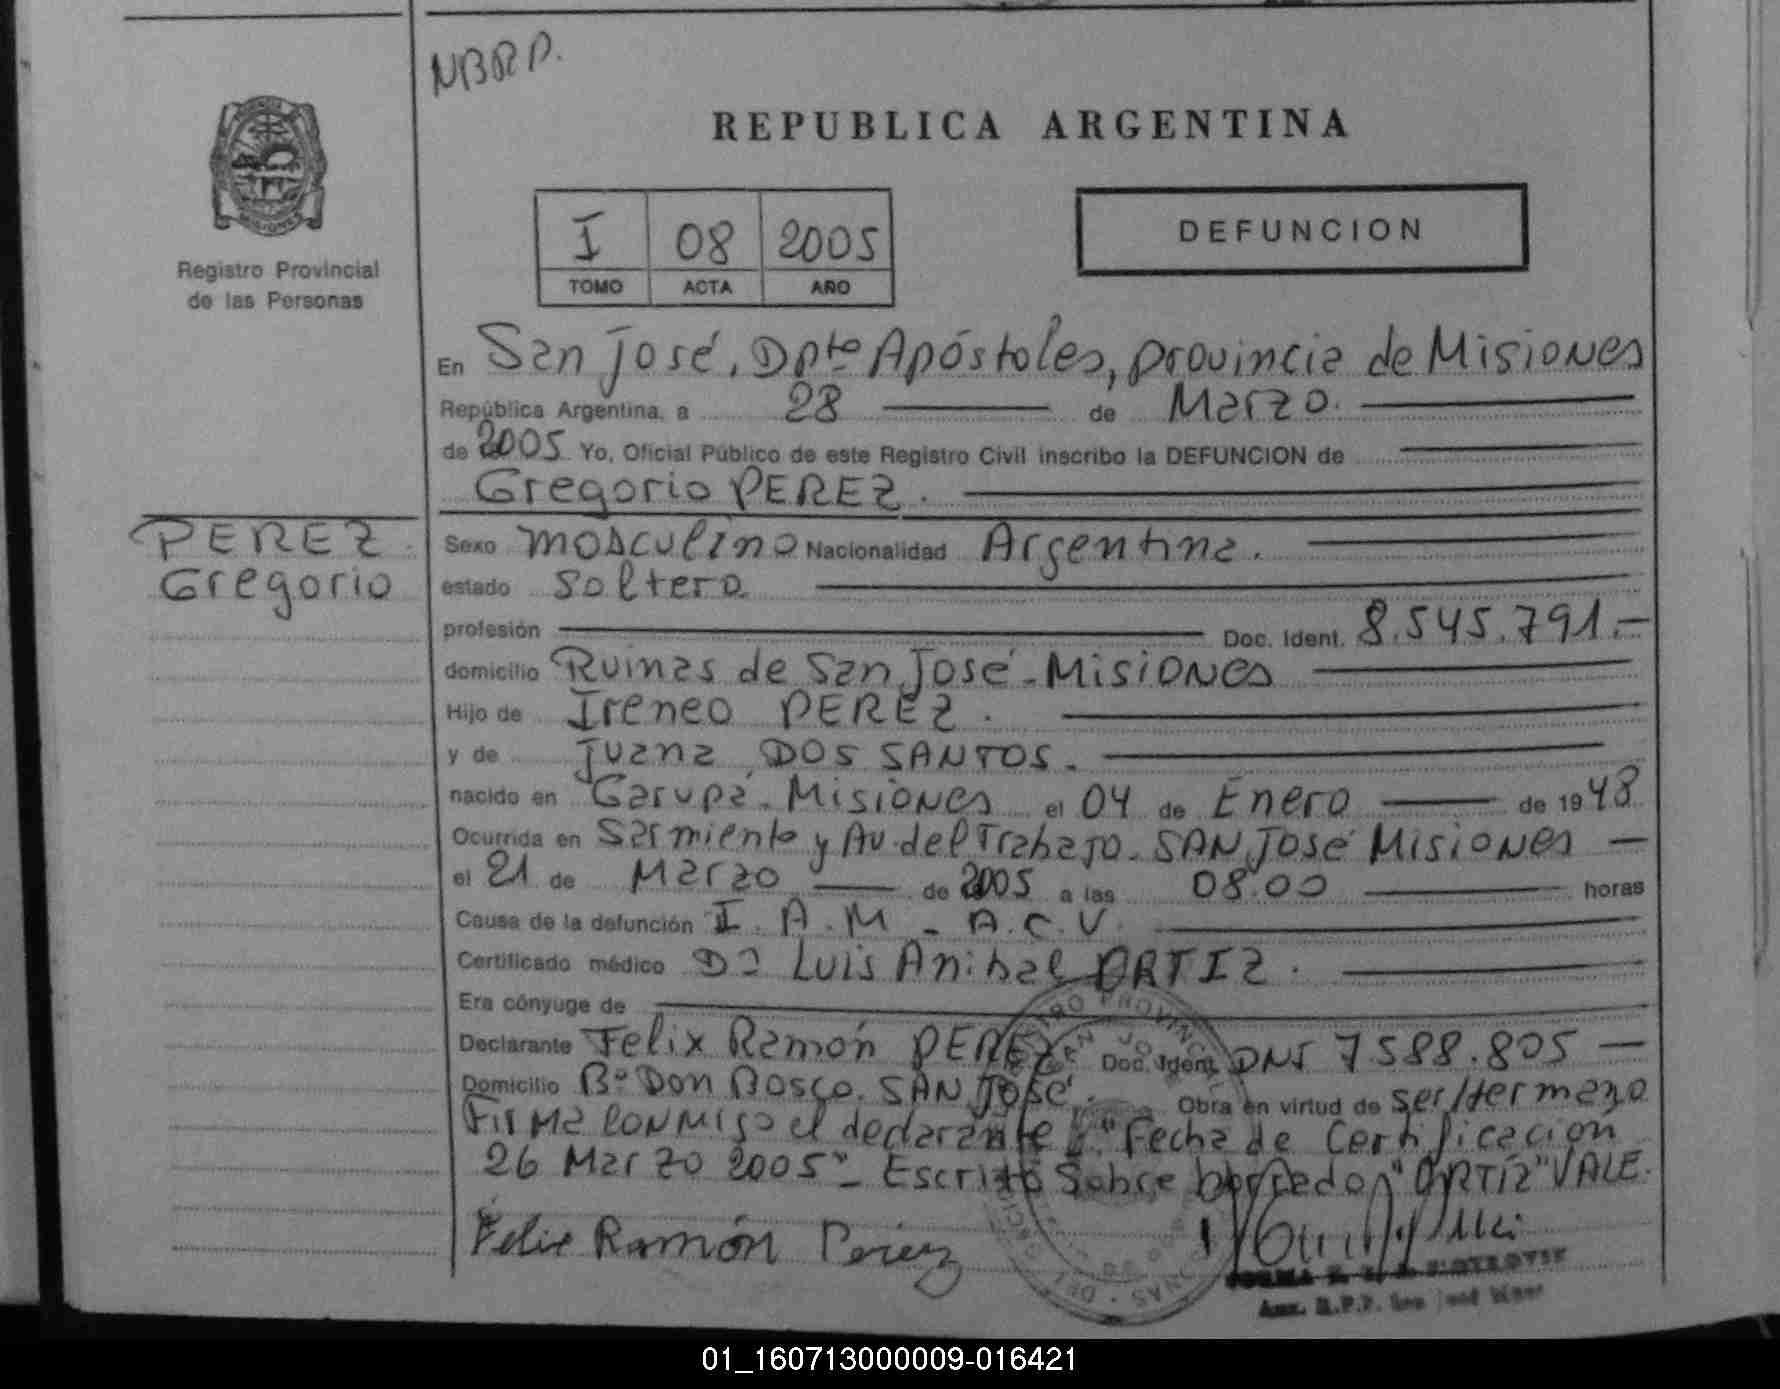 NBRP.
REPUBLICA ARGENTINA
I 08 2005
TOMO ACTA AÑO
DEFUNCION
Registro Provincial
de las Personas
En San José, Dpto Apóstoles, provincia de Misiones
República Argentina, a 28 de Marzo.
de 2005 Yo, Oficial Público de este Registro Civil inscribo la DEFUNCION de
Gregorio PEREZ.
PEREZ
Gregorio
Sexo masculino Nacionalidad Argentina.
estado Soltero
profesión Doc. Ident. 8.545.791.-
domicilio Ruinas de San José - Misiones
Hijo de Ireneo PEREZ.
y de Juana DOS SANTOS.
nacido en Garupá - Misiones el 04 de Enero de 1948
Ocurrida en Sarmiento y Av. del Trabajo. SAN José Misiones
el 21 de Marzo de 2005 a las 08.00 horas
Causa de la defunción I.A.M - A.C.V.
Certificado médico Dr Luis Anibal ORTIZ.
Era cónyuge de
Declarante Felix Ramón PEREZ Doc. Ident. DNI 7.588.805
Domicilio Bº Don Bosco. SAN José. Obra en virtud de ser/Hermano
Firma conmigo el declarante "Fecha de Certificacion
26 Marzo 2005" - Escrito Sobre borrado "ORTIZ" VALE.
Felix Ramón Perez
REGISTRO PROVINCIAL
SAN JOSE
01_160713000009-016421